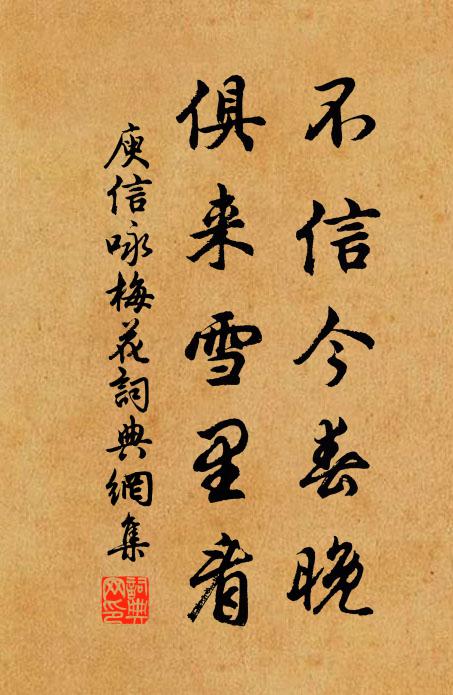 不信今春晚
俱来雪里看
庾信咏梅花詞典網集
詞典網印